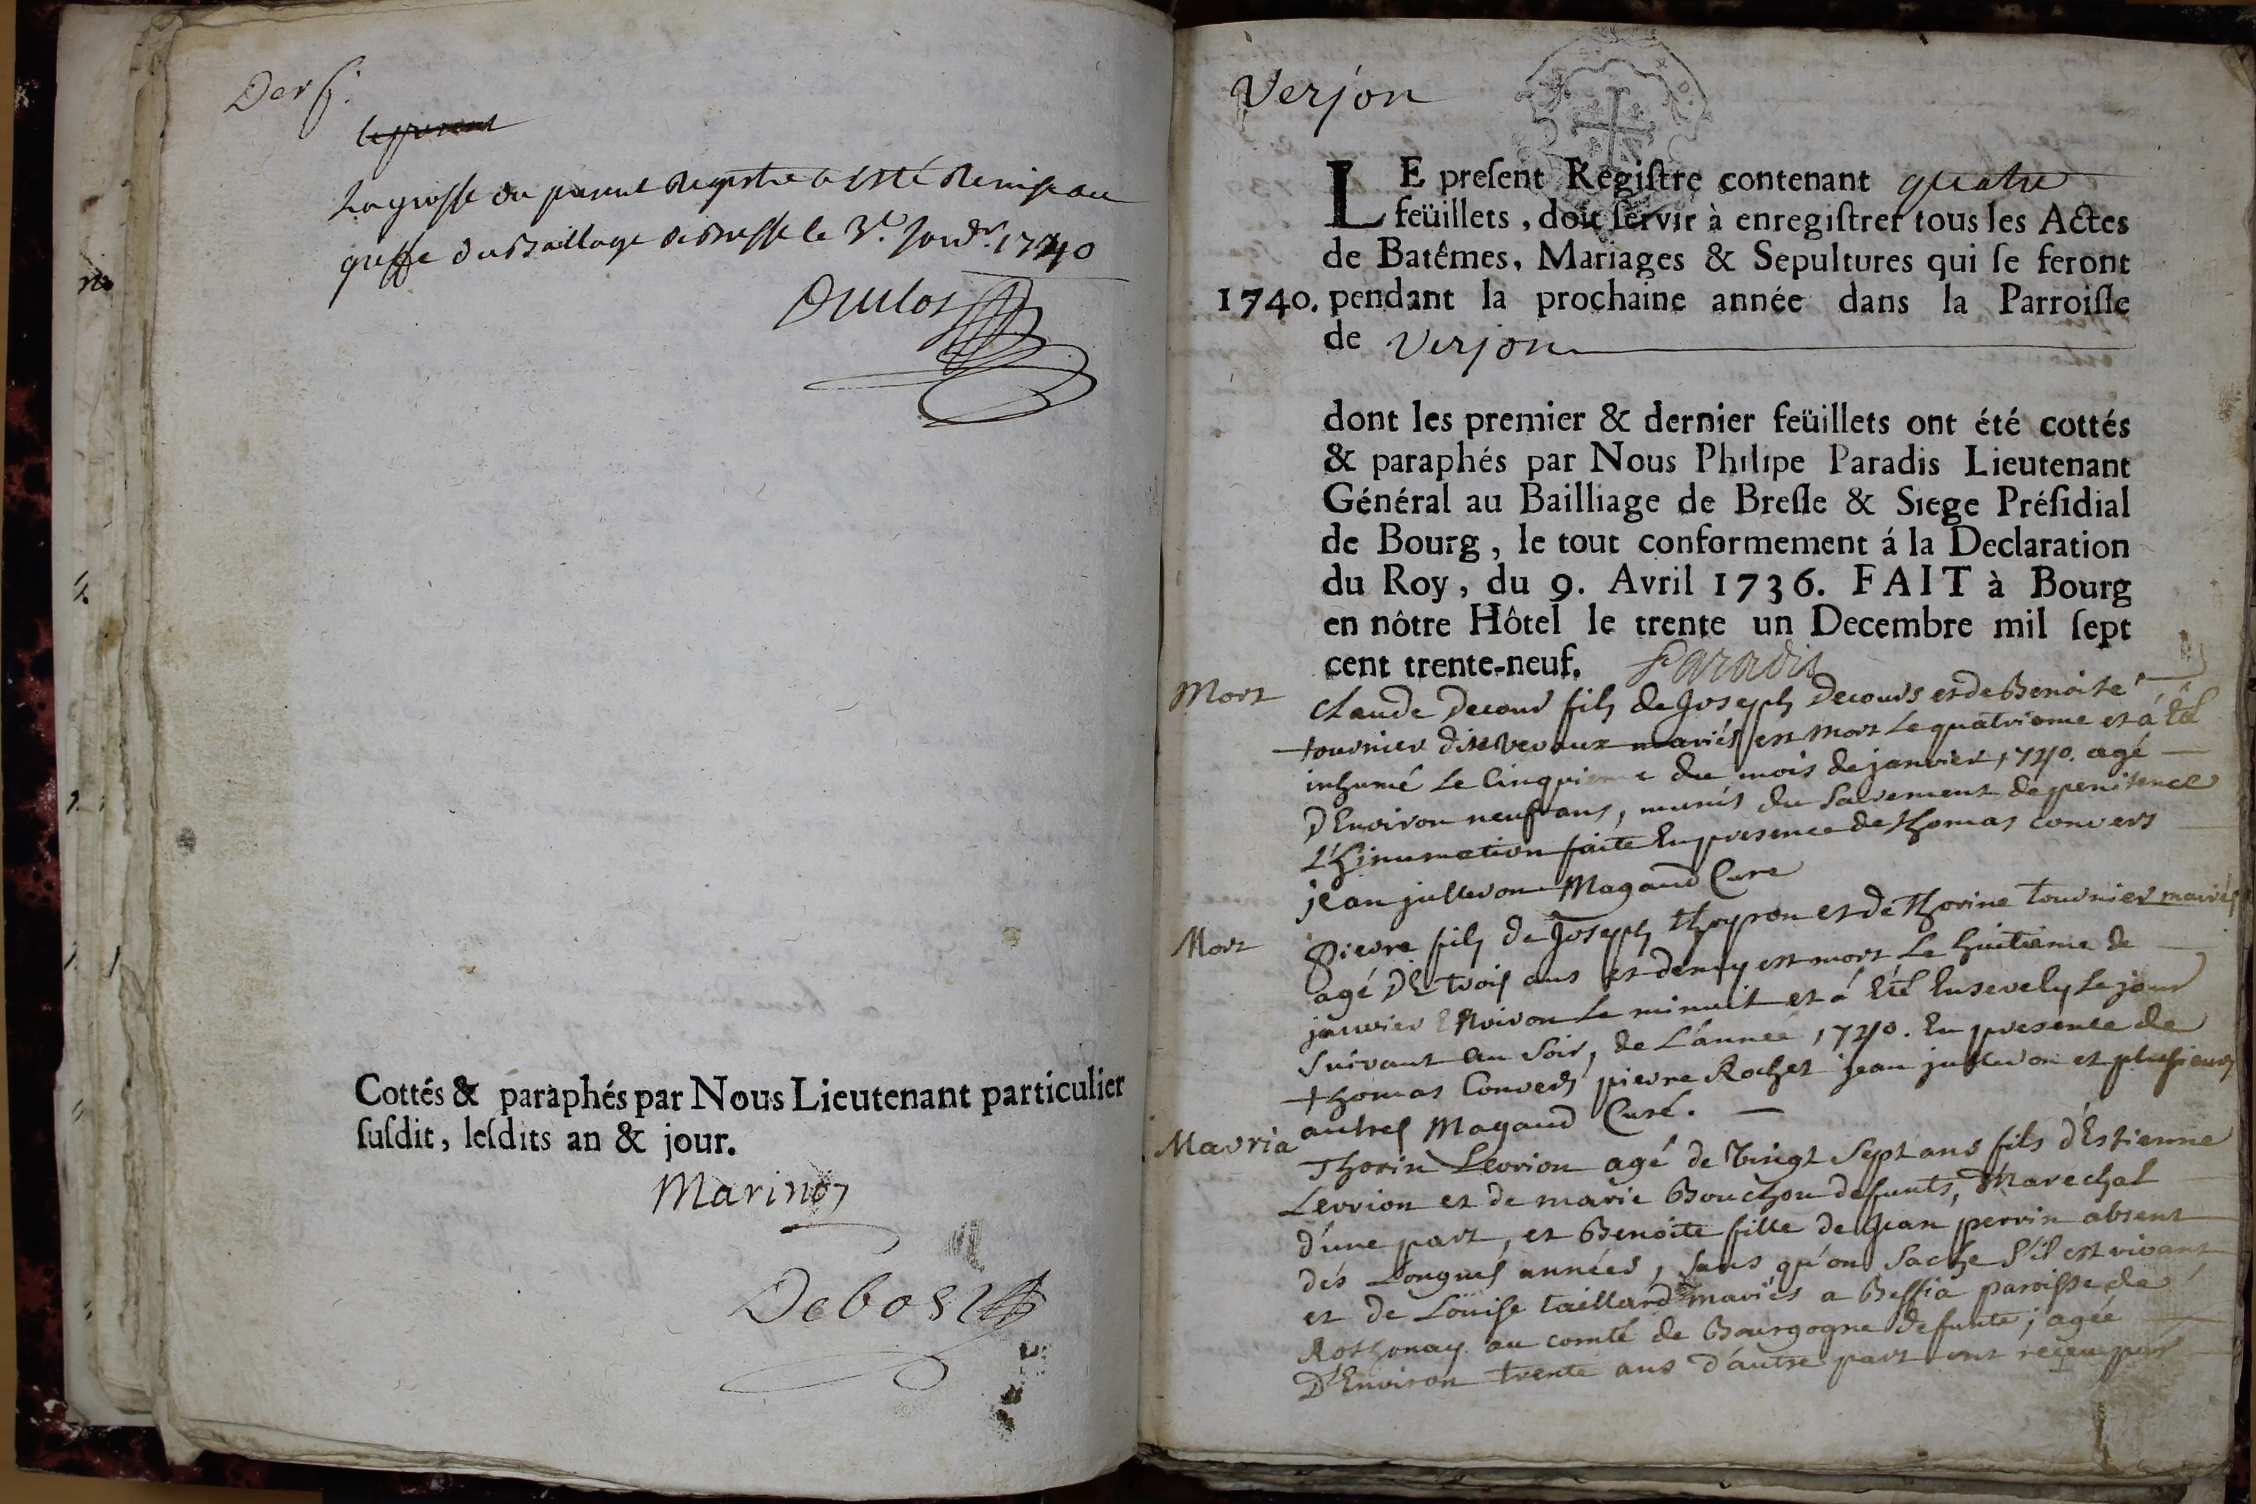 Der f.
le present
La grosse du present Registre a esté Remise au
greffe du Baillage de Bresse le 3.e Janv.r 1740
Duclos
Cottés & paraphés par Nous Lieutenant particulier
ſuſdit, leſdits an & jour.
Marinon
Debost
Verjon
LE preſent Regiſtre contenant quatre
feüillets, doit ſervir à enregiſtrer tous les Actes
de Batêmes, Mariages & Sepultures qui ſe feront
1740. pendant la prochaine année dans la Parroiſſe
de Verjon
dont les premier & dernier feüillets ont été cottés
& paraphés par Nous Philipe Paradis Lieutenant
Général au Bailliage de Breſſe & Siege Préſidial
de Bourg, le tout conformement á la Declaration
du Roy, du 9. Avril 1736. FAIT à Bourg
en nôtre Hôtel le trente un Decembre mil ſept
cent trente-neuf. Paradis
Mort Claude Decour fils de Joseph Decours et de Benoite
tournier mariés est mort Le quatrieme et á Eté
inhumé Le Cinquieme du mois de janvier, 1740. agé
D'Environ neuf ans, munis du Sacrement de penitence
L'Hinumation faite En presence de thomas convers
jean jullevon Magaud Curé
Mort Pierre fils de Joseph thoyron et de Thorine tournier mariés
agé DE trois ans et demy est mort Le huitieme de
janvier Environ Le minuit et á Eté Ensevely Le jour
Suivant au Soir, de L'année, 1740. En presence de
thomas Convers pierre Rochet jean jullevon et plusieurs
autres Magaud Curé.
Mavria Thorin Levrion agé de Vingt Sept ans fils d'Estienne
Levrion et de marie Bouchou defunts, Marechal
d'une part, et Benoite fille de Jean perrin absent
dés Longues années, sans qu'on Sache s'il est vivant
et de Loüise taillard mariés a Bessia paroisse de
Rothonay au comté de Bourgogne defunte; agée
D'Environ trente ans d'autre part ont reçeu par